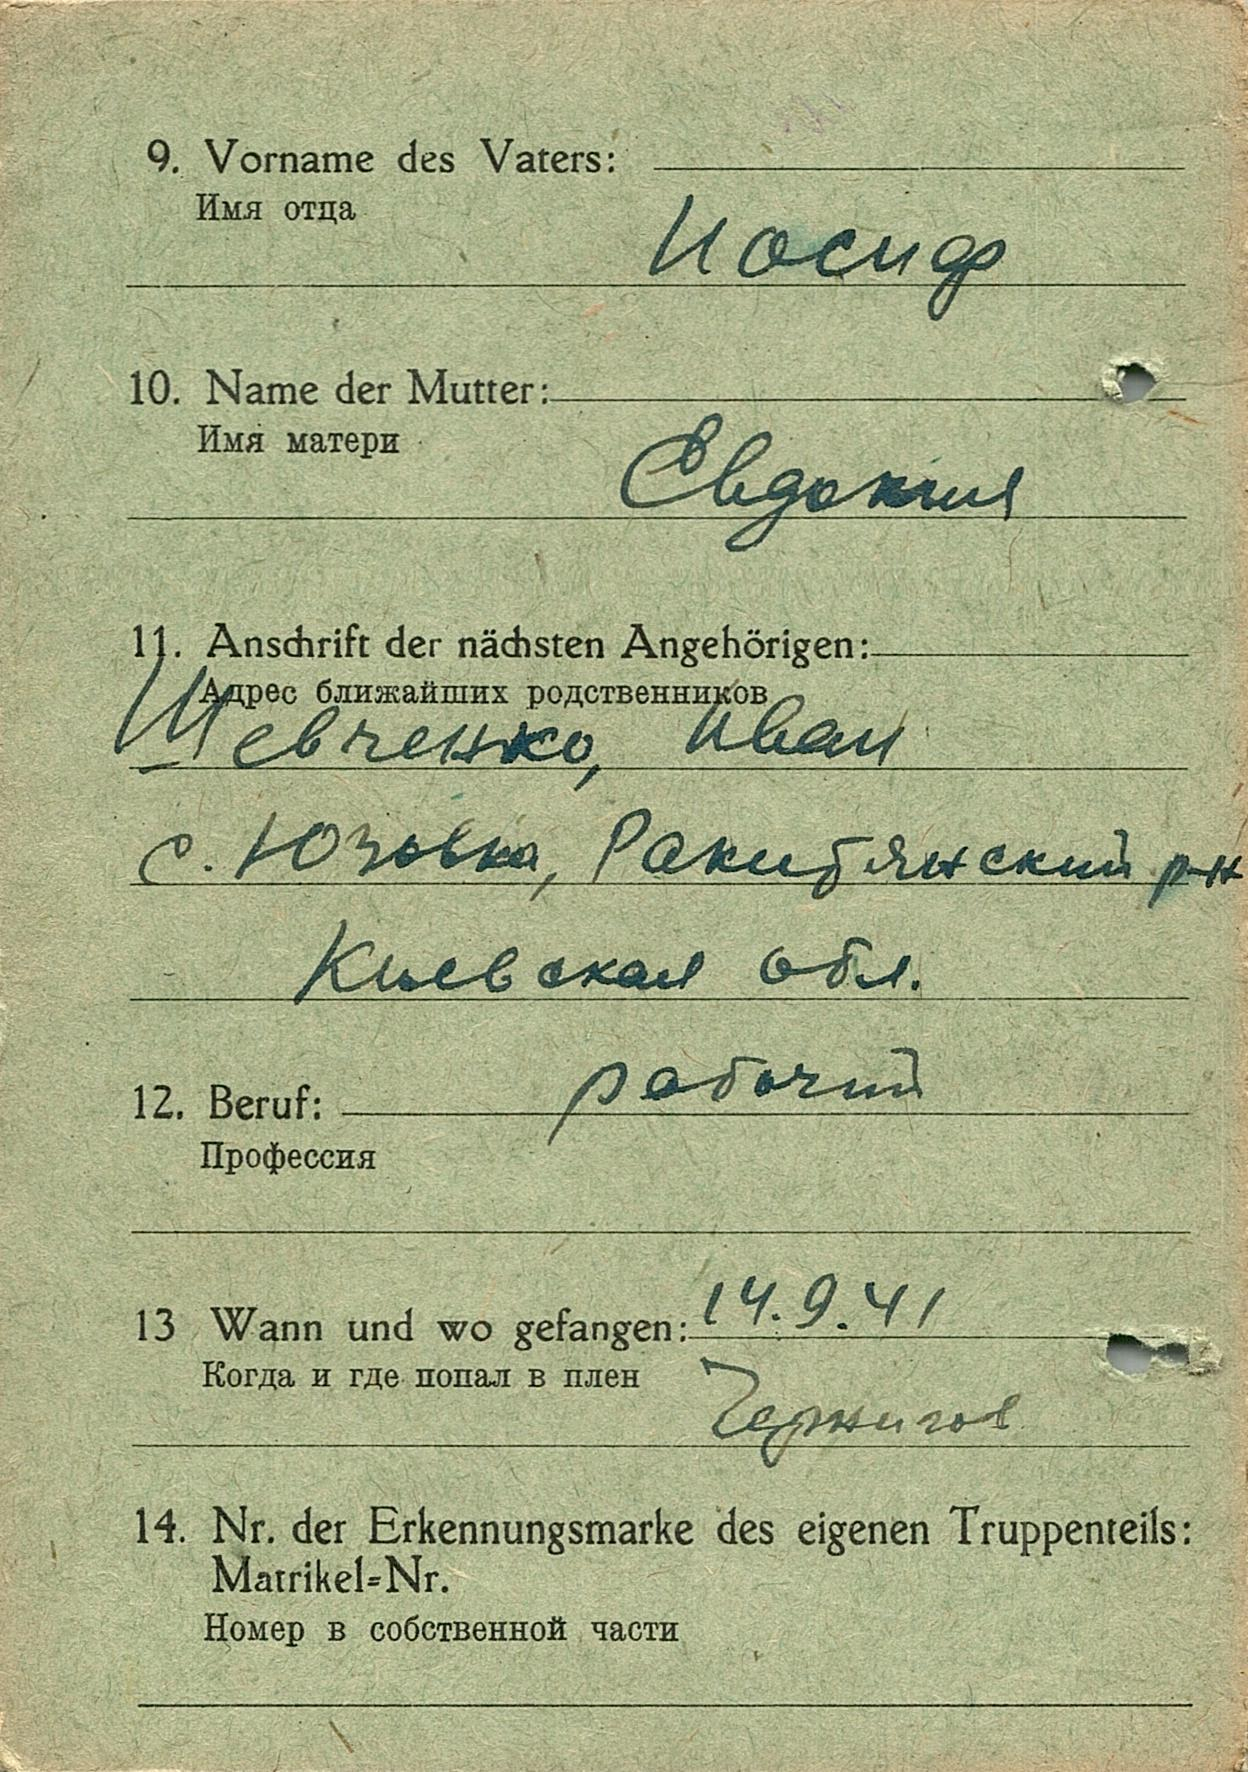 9. Vorname des Vaters:
Имя отца
Иосиф
10. Name der Mutter:
Имя матери
Евдокия
11. Anschrift der nächsten Angehörigen:
Адрес ближайших родственников
Шевченко, Иван
с. Юзовка, Ракитянский р-н
Киевская обл.
рабочий
12. Beruf:
Профессия
13 Wann und wo gefangen: 14.9.41
Когда и где попал в плен
Чернигов
14. Nr. der Erkennungsmarke des eigenen Truppenteils:
Matrikel-Nr.
Номер в собственной части